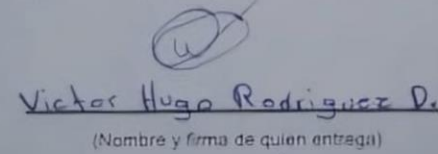 Victor Hugo Rodriguez D.
(Nombre y firma de quien entrega)